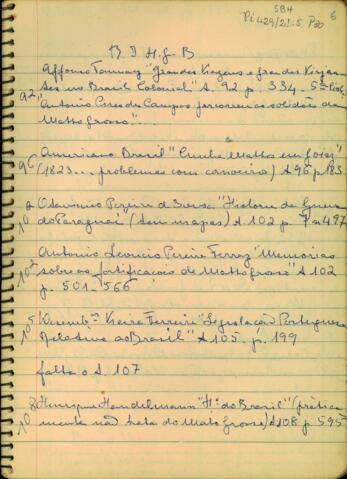 SBH
Pi 429/21:5 P30 6
R I H. G. B
Affonso Taunay "Grandes Viagens e grandes Viajan
92 tes no Brasil Colonial" A. 92 p. 334. 5ª
Antonio Pires de Campos percorre as solidões de
Matto Grosso"..
96 Americano Brasil "Cunha Mattos em Goiaz"
(1823... problemas com caroveiro) A 96 p 183
102 Octaviano Pereira de Souza "Historia da Guerra
do Paraguai" (tem mapas) A 102 p. 7 a 497
Antonio Leoncio Pereira Ferraz "Memorias
102 sobre as fortificações de Matto Grosso" A 102
p. 501-566
105 Desembºr Vieira Ferreira "Legislação Portuguesa
Relativa ao Brasil" A 105. p. 199
falta o A. 107
108 Henrique Handelmann "Hª do Brasil" (pràtica
mente não trata do Mato Grosso) A 108 p. 595